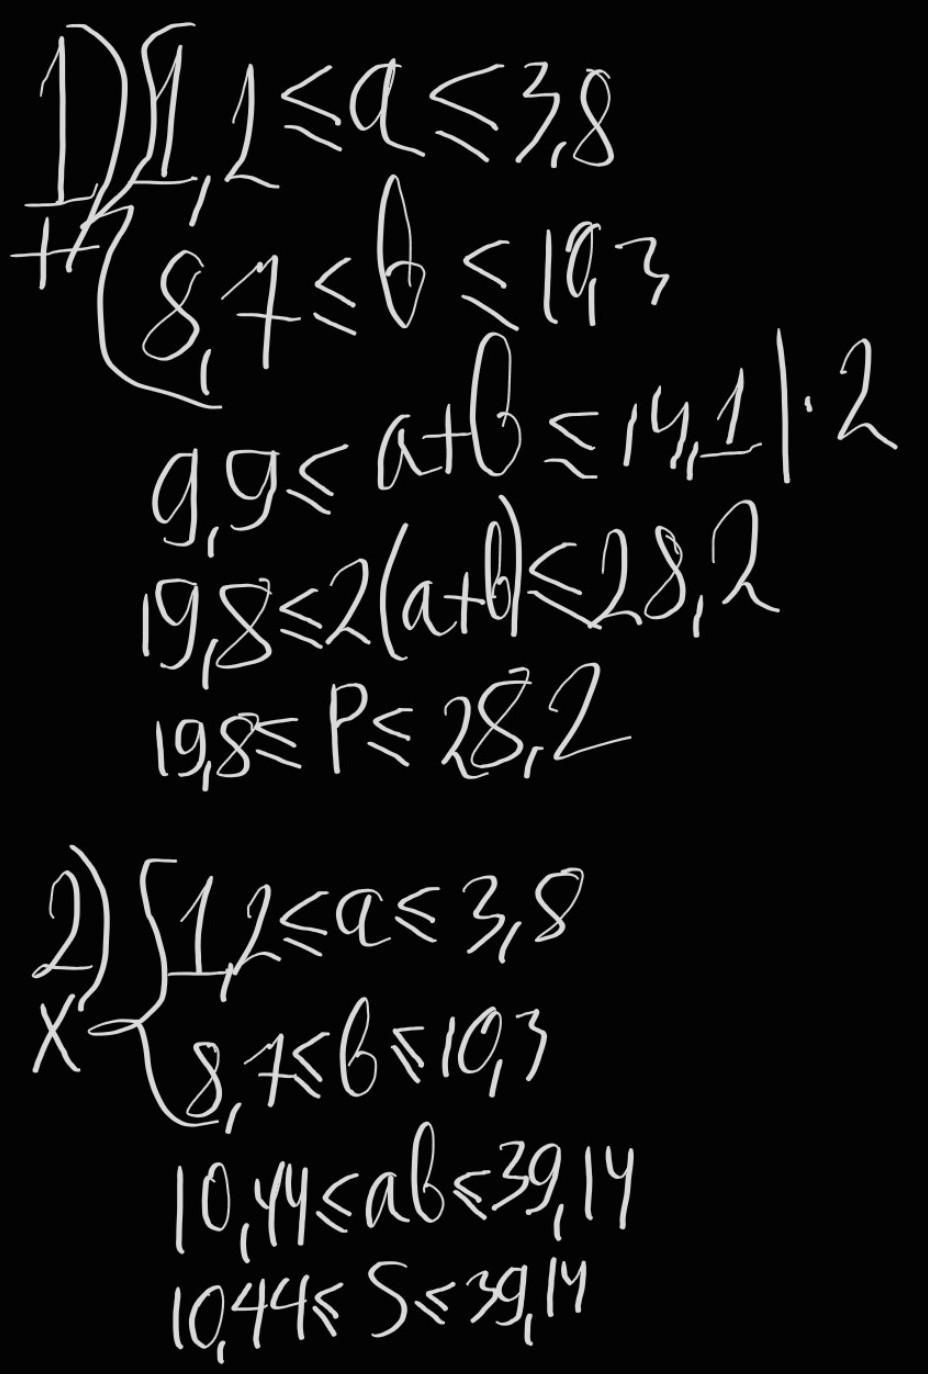 1) { 1,2 ≤ a ≤ 3,8
+ 8,7 ≤ b ≤ 10,3
9,9 ≤ a+b ≤ 14,1 | · 2
19,8 ≤ 2(a+b) ≤ 28,2
19,8 ≤ P ≤ 28,2
2) { 1,2 ≤ a ≤ 3,8
× 8,7 ≤ b ≤ 10,3
10,44 ≤ ab ≤ 39,14
10,44 ≤ S ≤ 39,14